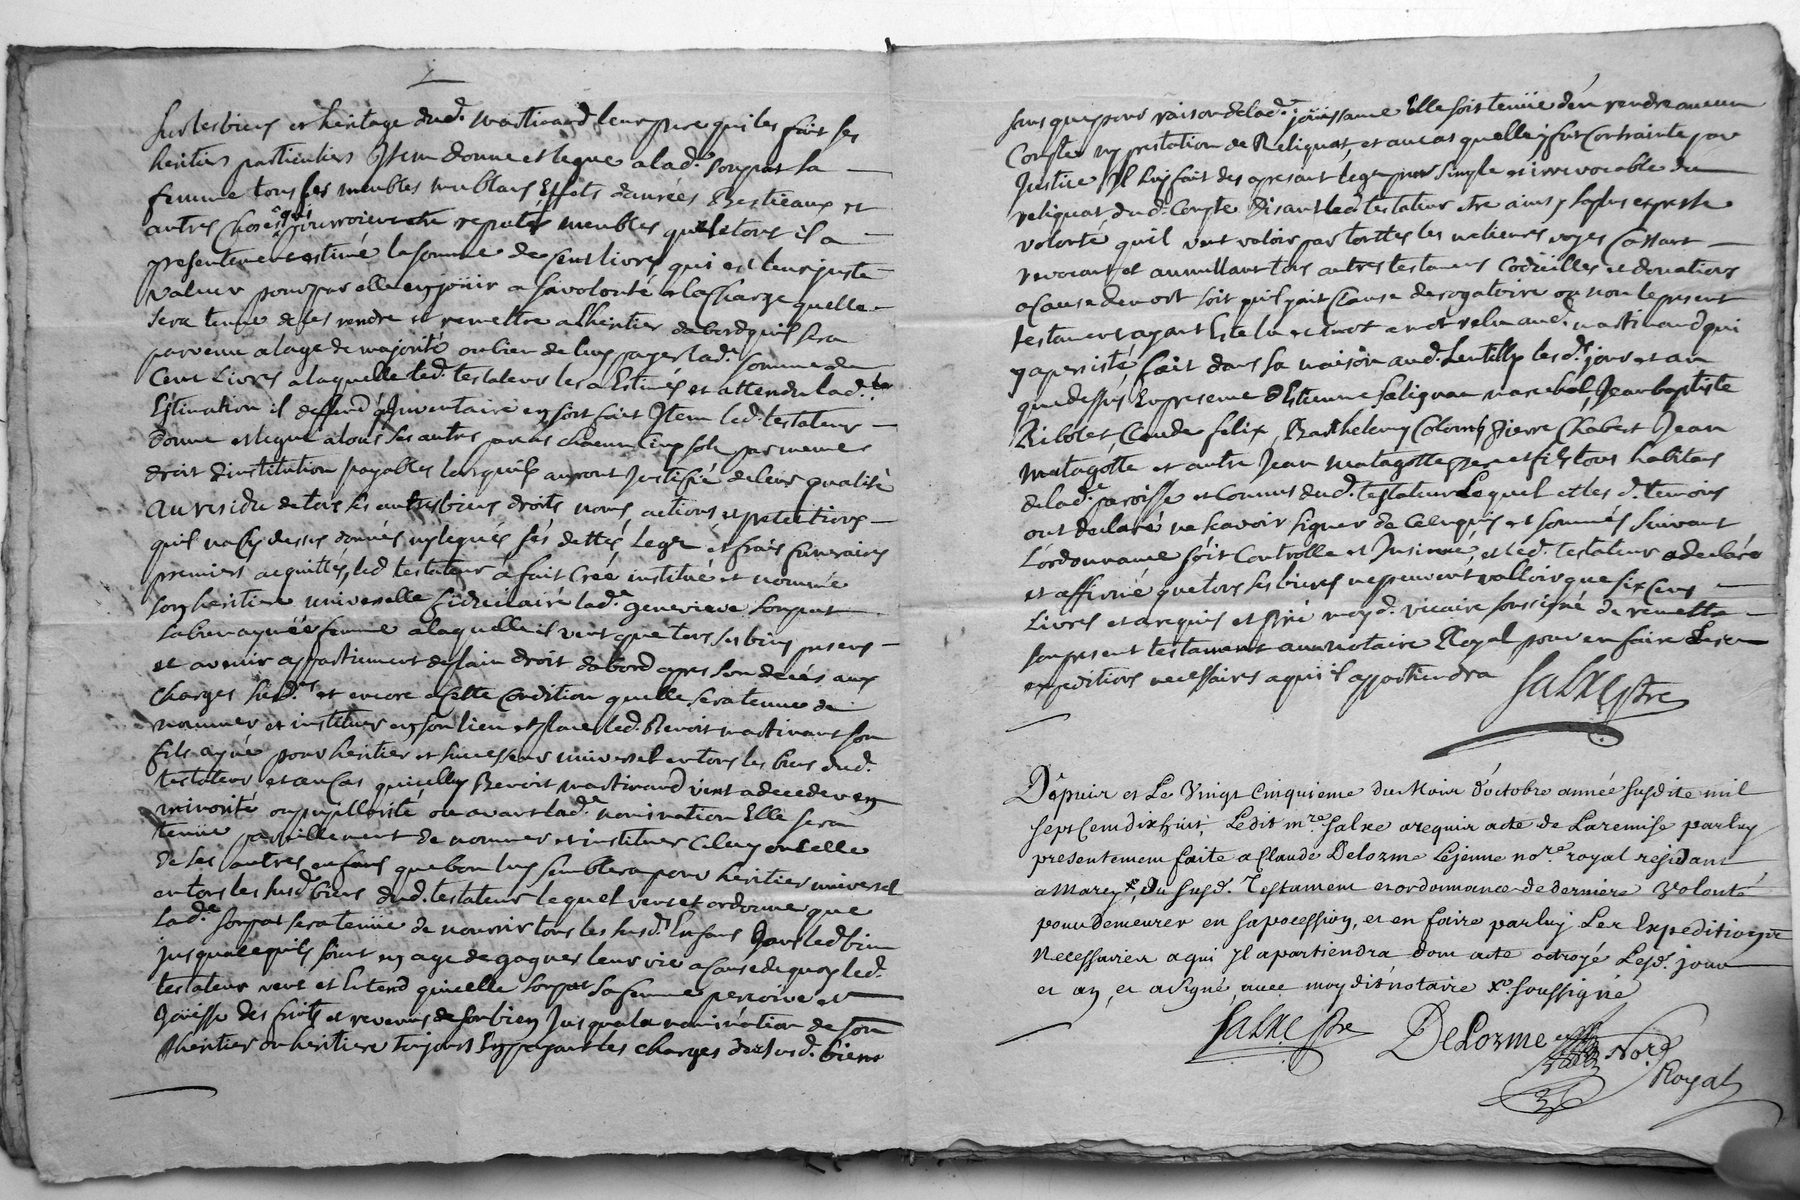 Sur les biens et heritage dud. Martinard leur pere qui les fait ses
heritiers particuliers Item donne et legue a lad.e Sonpat sa
femme tous ses meubles meublans Effets danrées Bestieaux et
autres choses qui pourroient etre reputés meubles quele tout il a
presentement estimé la somme de Cent livres qui est leur juste
valeur pour par elle en joüir a sa volonté a la Charge quelle
sera tenue de les rendre et remettre a lheritier dabord quil sera
parvenu a lage de majorité ou bien de luy payer lad.e somme de
Cent Livres a laquelle led. testateur les a Estimés et attendu lad.e
Estimation il deffend q Inventaire en soit fait Item led. testateur
donne et legue a tous ses autres parens chacun Cinq sols par meme
droit dinstitution payables lorsquils auront Justifié de leur qualité
au residu de tous ses autres biens droits noms actions et pretentions
quil na cy dessus donnés ny legués ses dettes Legz et frais funeraires
premiers acquittés, led testateur a fait Créé institué et nommé
son heritiere universelle fiduciaire lad.e Genevieve Sonpat
sa bien aymée femme a laquelle il veut que tous ses biens presens
et avenir appartiennent de plain droit dabord apres son decés aux
charges susd.es et encore a cette Condition quelle sera tenue de
nommer et instituer en son lieu et place led. Benoit martinard son
fils ayné pour heritier et successeur universel en tous les biens dud.
testateur et au Cas quicelluy Benoit martinard vint a deceder en
minorité ou pupillarité ou avant lad.e nomination Elle sera
tenüe pareillement de nommer et instituer Celuy ou Celle
de ses autres enfans que bon luy semblera pour heritier universel
en tous les susd. biens dud. testateur lequel veut et ordonne que
lad.e Sonpat sera tenüe de nourrir tous les susd.s Enfans dans led bien
jusqua ce quils soient en age de gagner leur vie a cause de quoy led.
testateur veut et Entend quicelle Sonpat sa femme percoive et
Joüisse des fruits et revenus de son bien Jusqua la nomination de son
heritier ou heritiere toujours En payant les charges dud. biens
sans que pour raison de lad.e joüissance Elle soit tenüe den rendre aucun
Compte ny prestation de Reliquat et au cas quelle y fut Contrainte par
Justice Il luy fait des apresant legz pur simple et irrevocable du
reliquat dud. Compte Disant led testateur etre ainsy sa plus expresse
volonté quil veut valoir par touttes les meilieures voyes Cassant
revocant et annullant tous autres testamens Codicilles et donations
a Cause de mort soit quil y ait Clause derogatoire ou non le present
testament ayant Esté lu et mot a mot relu aud. martinard qui
y a persisté, fait dans sa maison aud. Lentilly les d.s jour et an
que dessus En presence dEstienne Salignac marechal, Jean baptiste
Ribolet Claude felix Barthelemy Colomb Pierre Chabert Jean
Matagotte et autre Jean Matagotte pere et fils tous habitans
de lad.e paroisse et Connus dud. testateur Lequel et les d. temoins
ont declaré ne scavoir signer de Ce enquis et sommés suivant
Lordonnance soit Controlle et Insinué, et led. testateur a declaré
et affirmé que tous ses biens ne peuvent valloir que six Cens
Livres et a requis et prié moy d. vicaire soussigné de remettre
son present testament au notaire Royal pour en faire Les
expeditions necessaires a qui il appartiendra
Salxe ptre
Depuis et Le Vingt Cinquieme du Moix d'octobre année susdite mil
sept Cent dix huit, Ledit m.re Salxe a requis acte de La remise par luy
presentement faite a Claude Delorme Lejeune no.re royal residant
a Marcy du susd. Testament et ordonnance de derniere Volonté
pour demeurer en sa pocession, et en faire par luy Les Expeditions
Necessairex a qui Il apartiendra dont acte octroyé Lesd. jour
et an, et a signé avec moy dit notaire soussigné
Salxe ptre DeLorme Nore
Royal